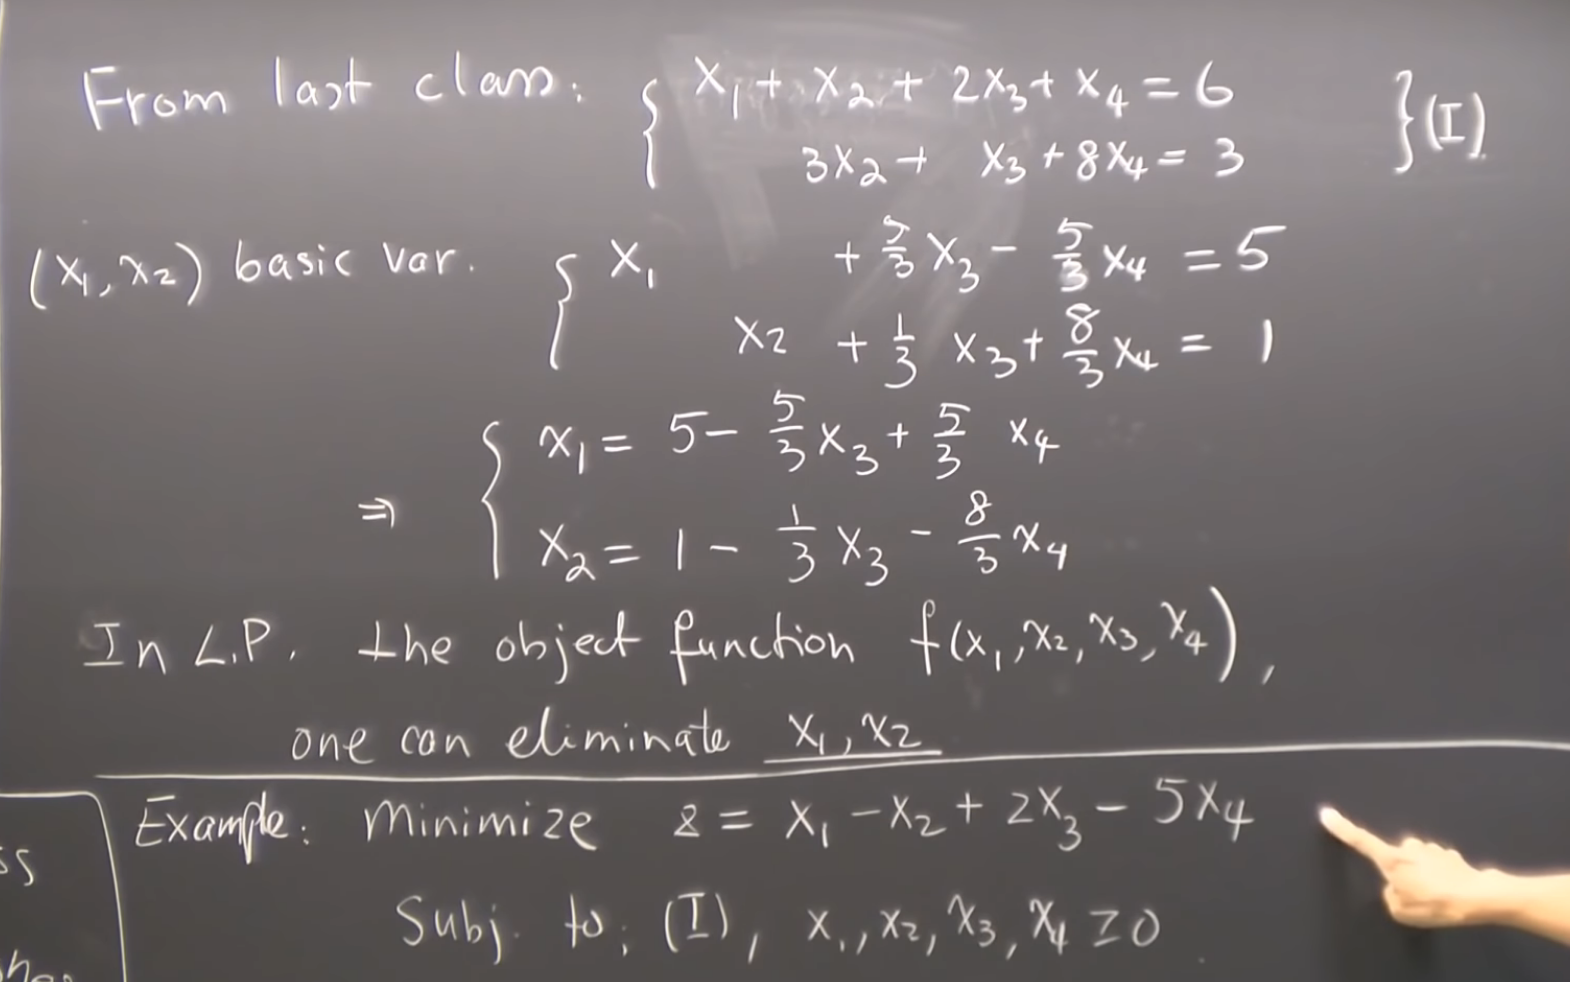 From last class: { x₁ + x₂ + 2x₃ + x₄ = 6
3x₂ + x₃ + 8x₄ = 3 } (I)
(x₁, x₂) basic var. { x₁ + 5/3 x₃ - 5/3 x₄ = 5
x₂ + 1/3 x₃ + 8/3 x₄ = 1
⇒ { x₁ = 5 - 5/3 x₃ + 5/3 x₄
x₂ = 1 - 1/3 x₃ - 8/3 x₄
In L.P. the object function f(x₁, x₂, x₃, x₄),
one can eliminate x₁, x₂
Example: Minimize z = x₁ - x₂ + 2x₃ - 5x₄
Subj. to: (I), x₁, x₂, x₃, x₄ ≥ 0